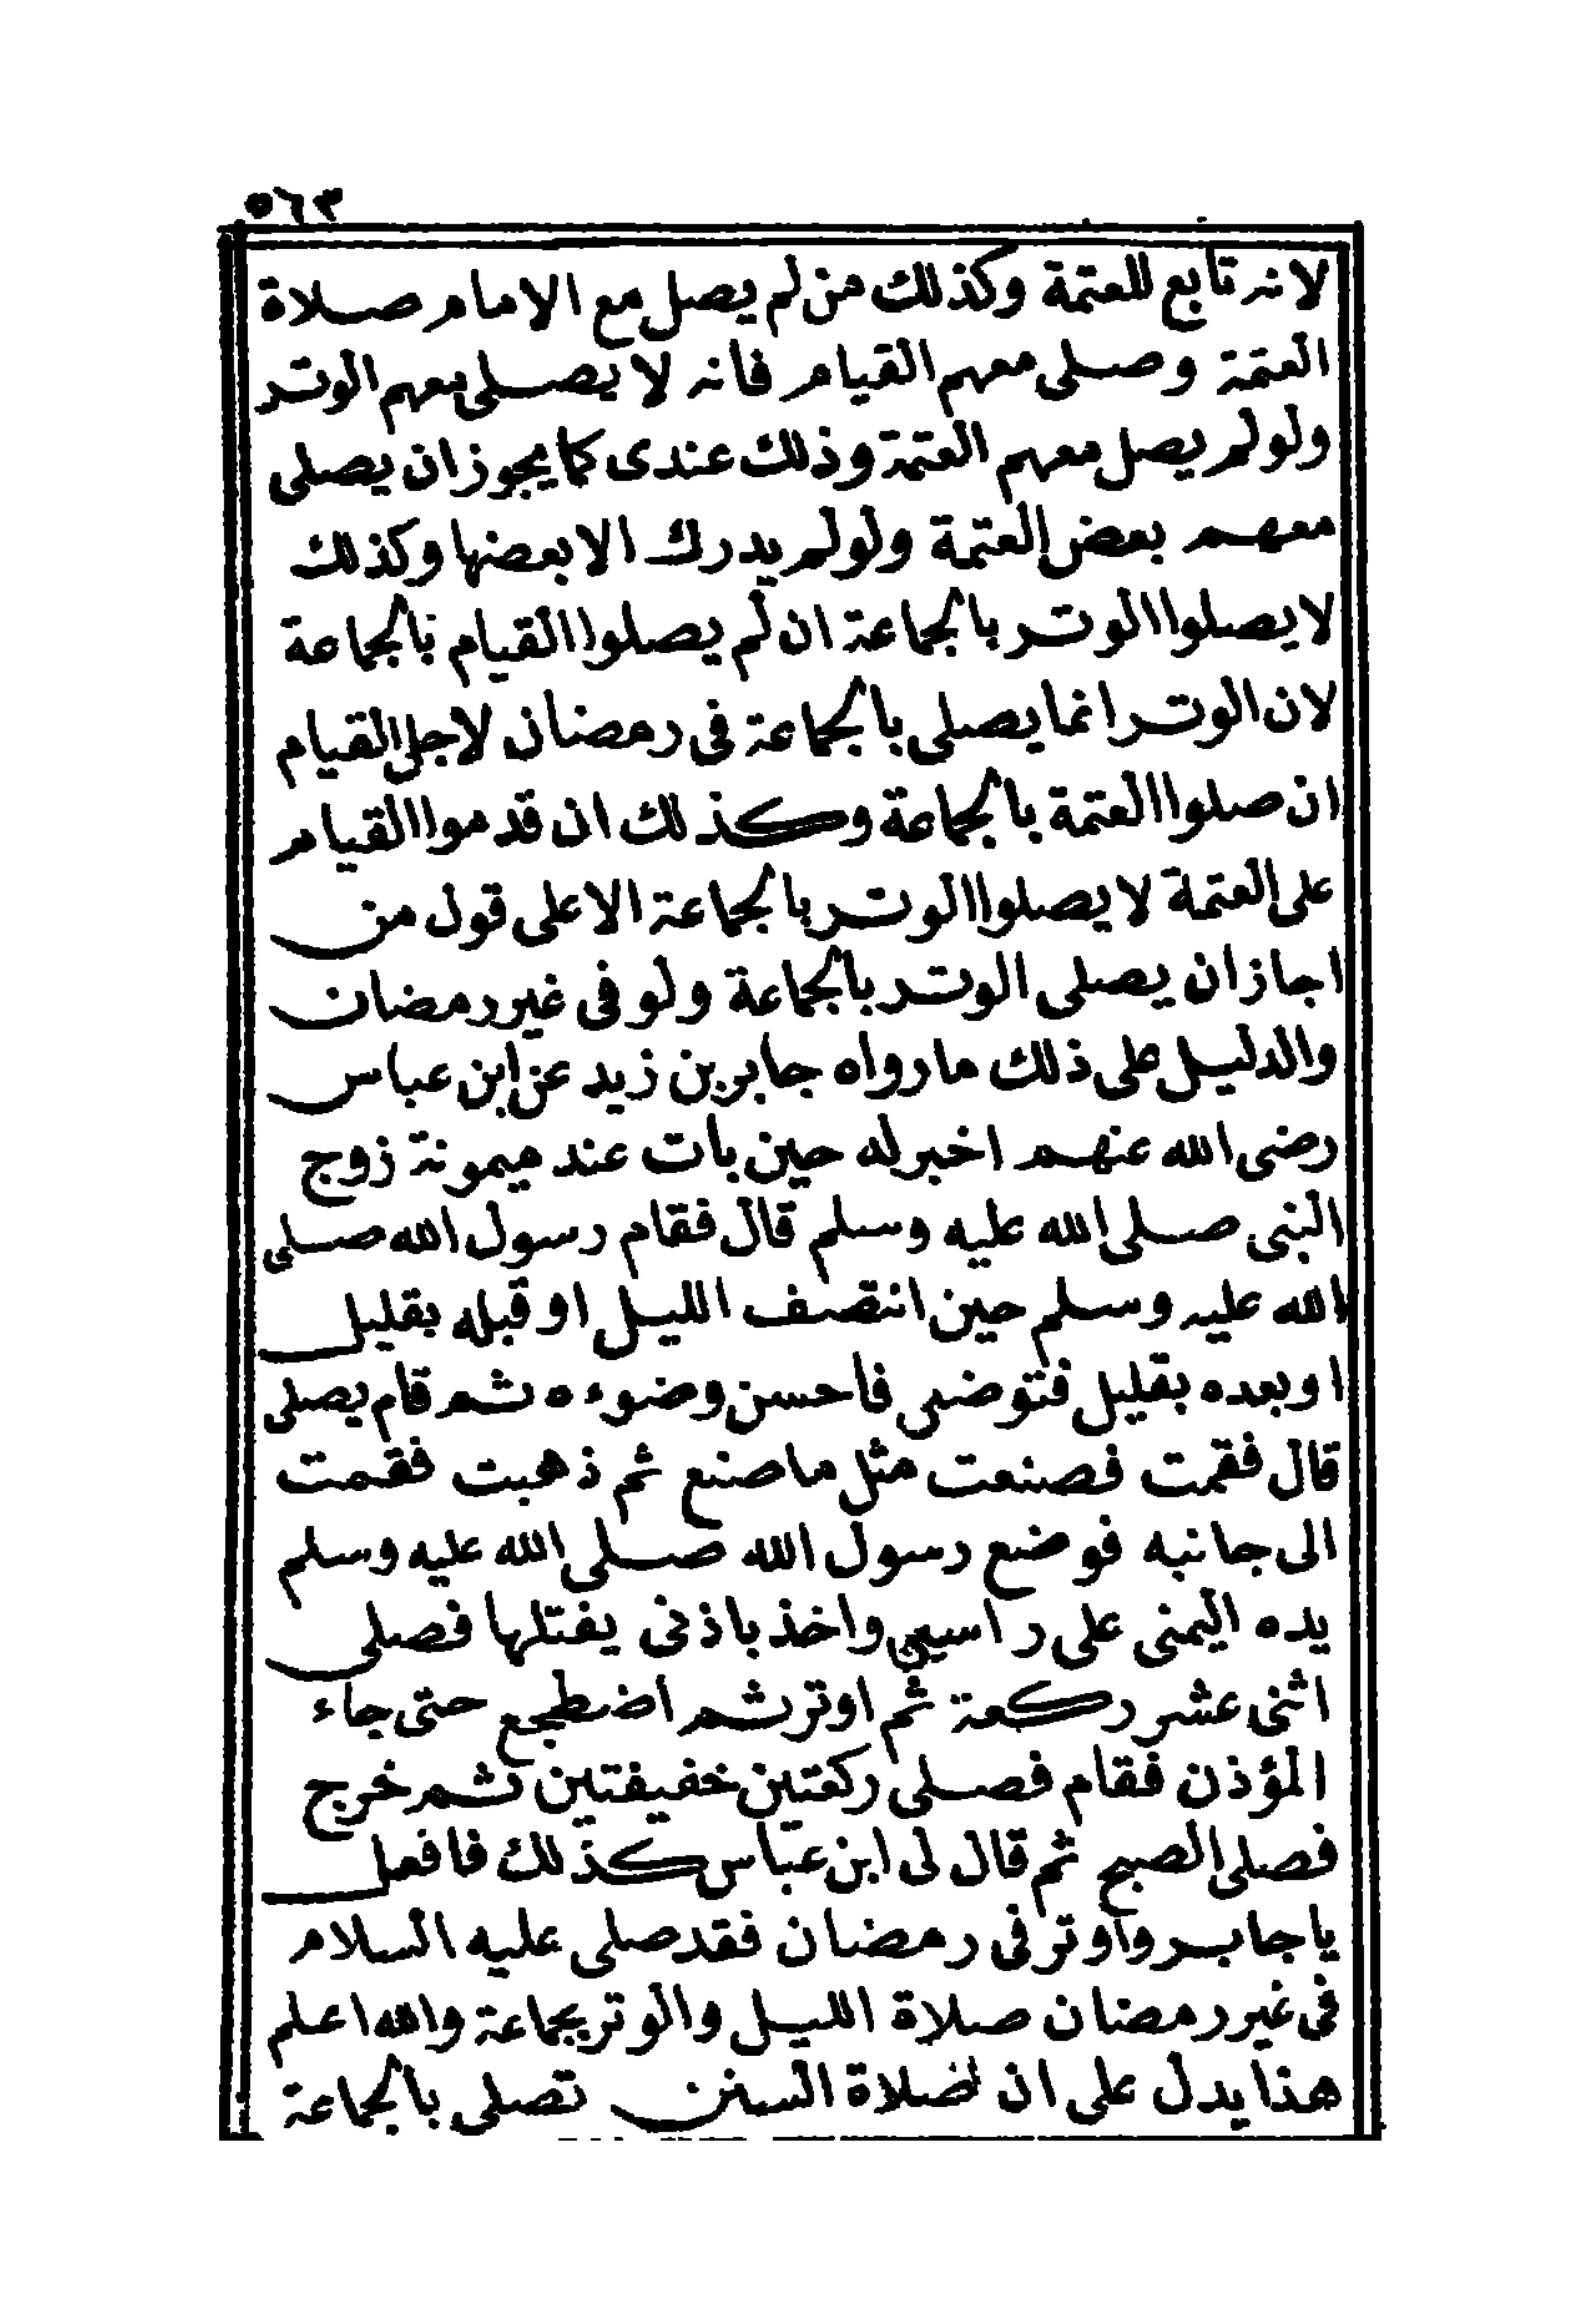 ٥٦٣
لانه تابع للعتمة وكذلك من لم يصل مع الامام صلاة
العتمة وصلى معهم القيام فانه لا يصلى معهم الوتر
ولو لم يصل معهم العتمة وذلك عندى كما يجوز ان يصلى
معهم بعض العتمة ولو لم يدرك الا بعضها وكذلك
لا يصلوا الوتر بالجماعة ان لم يصلوا القيام بالجماعة
لان الوتر انما يصلى بالجماعة فى رمضان لاجل القيام
ان صلوا العتمة بالجماعة وكذلك ان قدموا القيام
على العتمة لا يصلوا الوتر بالجماعة الا على قول من
اجاز ان يصلى الوتر بالجماعة ولو فى غير رمضان
والدليل على ذلك ما رواه جابر بن زيد عن ابن عباس
رضى الله عنهم اخبر له حين بات عند ميمونة زوج
النبى صلى الله عليه وسلم قال فقام رسول الله صلى
الله عليه وسلم حين انتصف الليل او قبله بقليل
او بعده بقليل فتوضى فاحسن وضوءه ثم قام يصلى
قال فقمت فصنعت مثل ما صنع ثم ذهبت فقمت
الى جانبه فوضع رسول الله صلى الله عليه وسلم
يده اليمنى على راسيى واخذ باذنى يفتلها فصلى
اثنى عشر ركعة ثم اوتر ثم اضطجع حتى جاء
المؤذن فقام فصلى ركعتين خفيفتين ثم خرج
فصلى الصبح ثم قال لى ابن عباس كذلك فافعل
يا جابر واوتر فى رمضان فقد صلى عليه السلام
فى غير رمضان صلاة الليل والوتر بجماعة والله اعلم
هذا يدل على ان لصلاة السنن تصلى بالجماعة